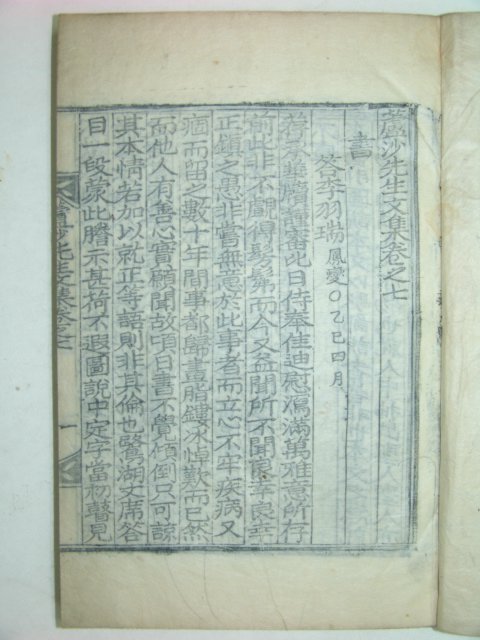 蘆沙先生文集卷之七
書
答李羽瑞鳳燮○乙巳四月
昔承華牘謹審此日侍奉佳迪慰瀉滿萬雅意所存
前此非不覵得髣髴而今又益聞所不聞良幸良幸
正鎭之愚非嘗無意於此事者而立心不牢疾病又
痼而留之數十年間事都歸畫脂鏤冰悼歎而已然
而他人有善心實願聞故頃日書不覺傾倒只可諒
其本情若加以就正等語則非其倫也鷺湖文席答
目一段蒙此謄示甚荷不遐圖說中定字當初瞥見
蘆沙先生文集卷之七
一